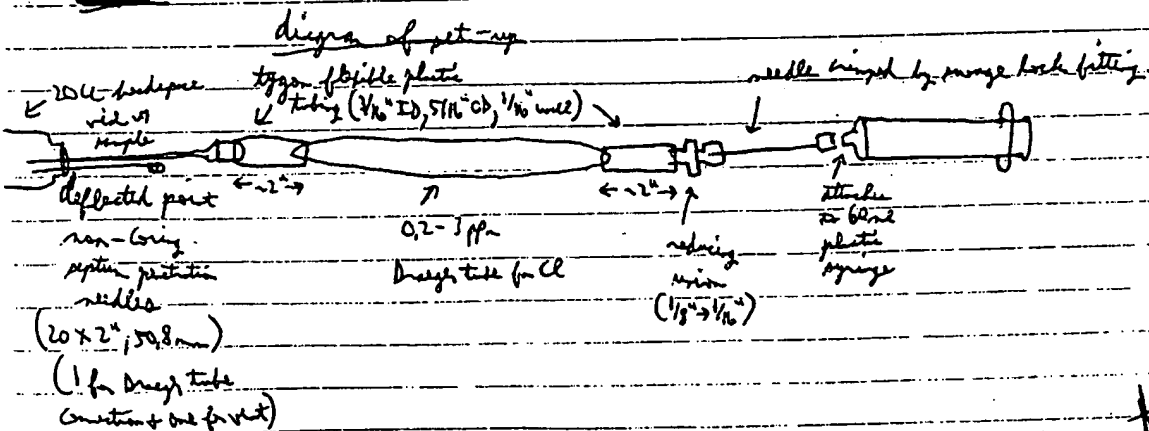 diagram of set-up
20cc headspace
vial w/
sample
tygon flexible plastic
tubing (3/16" ID, 5/16" OD, 1/16" wall)
needle crimped by swage lock fitting
←~2"→
←~2"→
deflected point
non-coring
septum penetration
needles
(20 x 2", 50.8 mm)
(1 for Draeger tube
connection & one for vent)
0.2-3 ppm
Draeger tube for Cl
reducing
union
(1/8" → 1/16")
attaches
to 60 ml
plastic
syringe